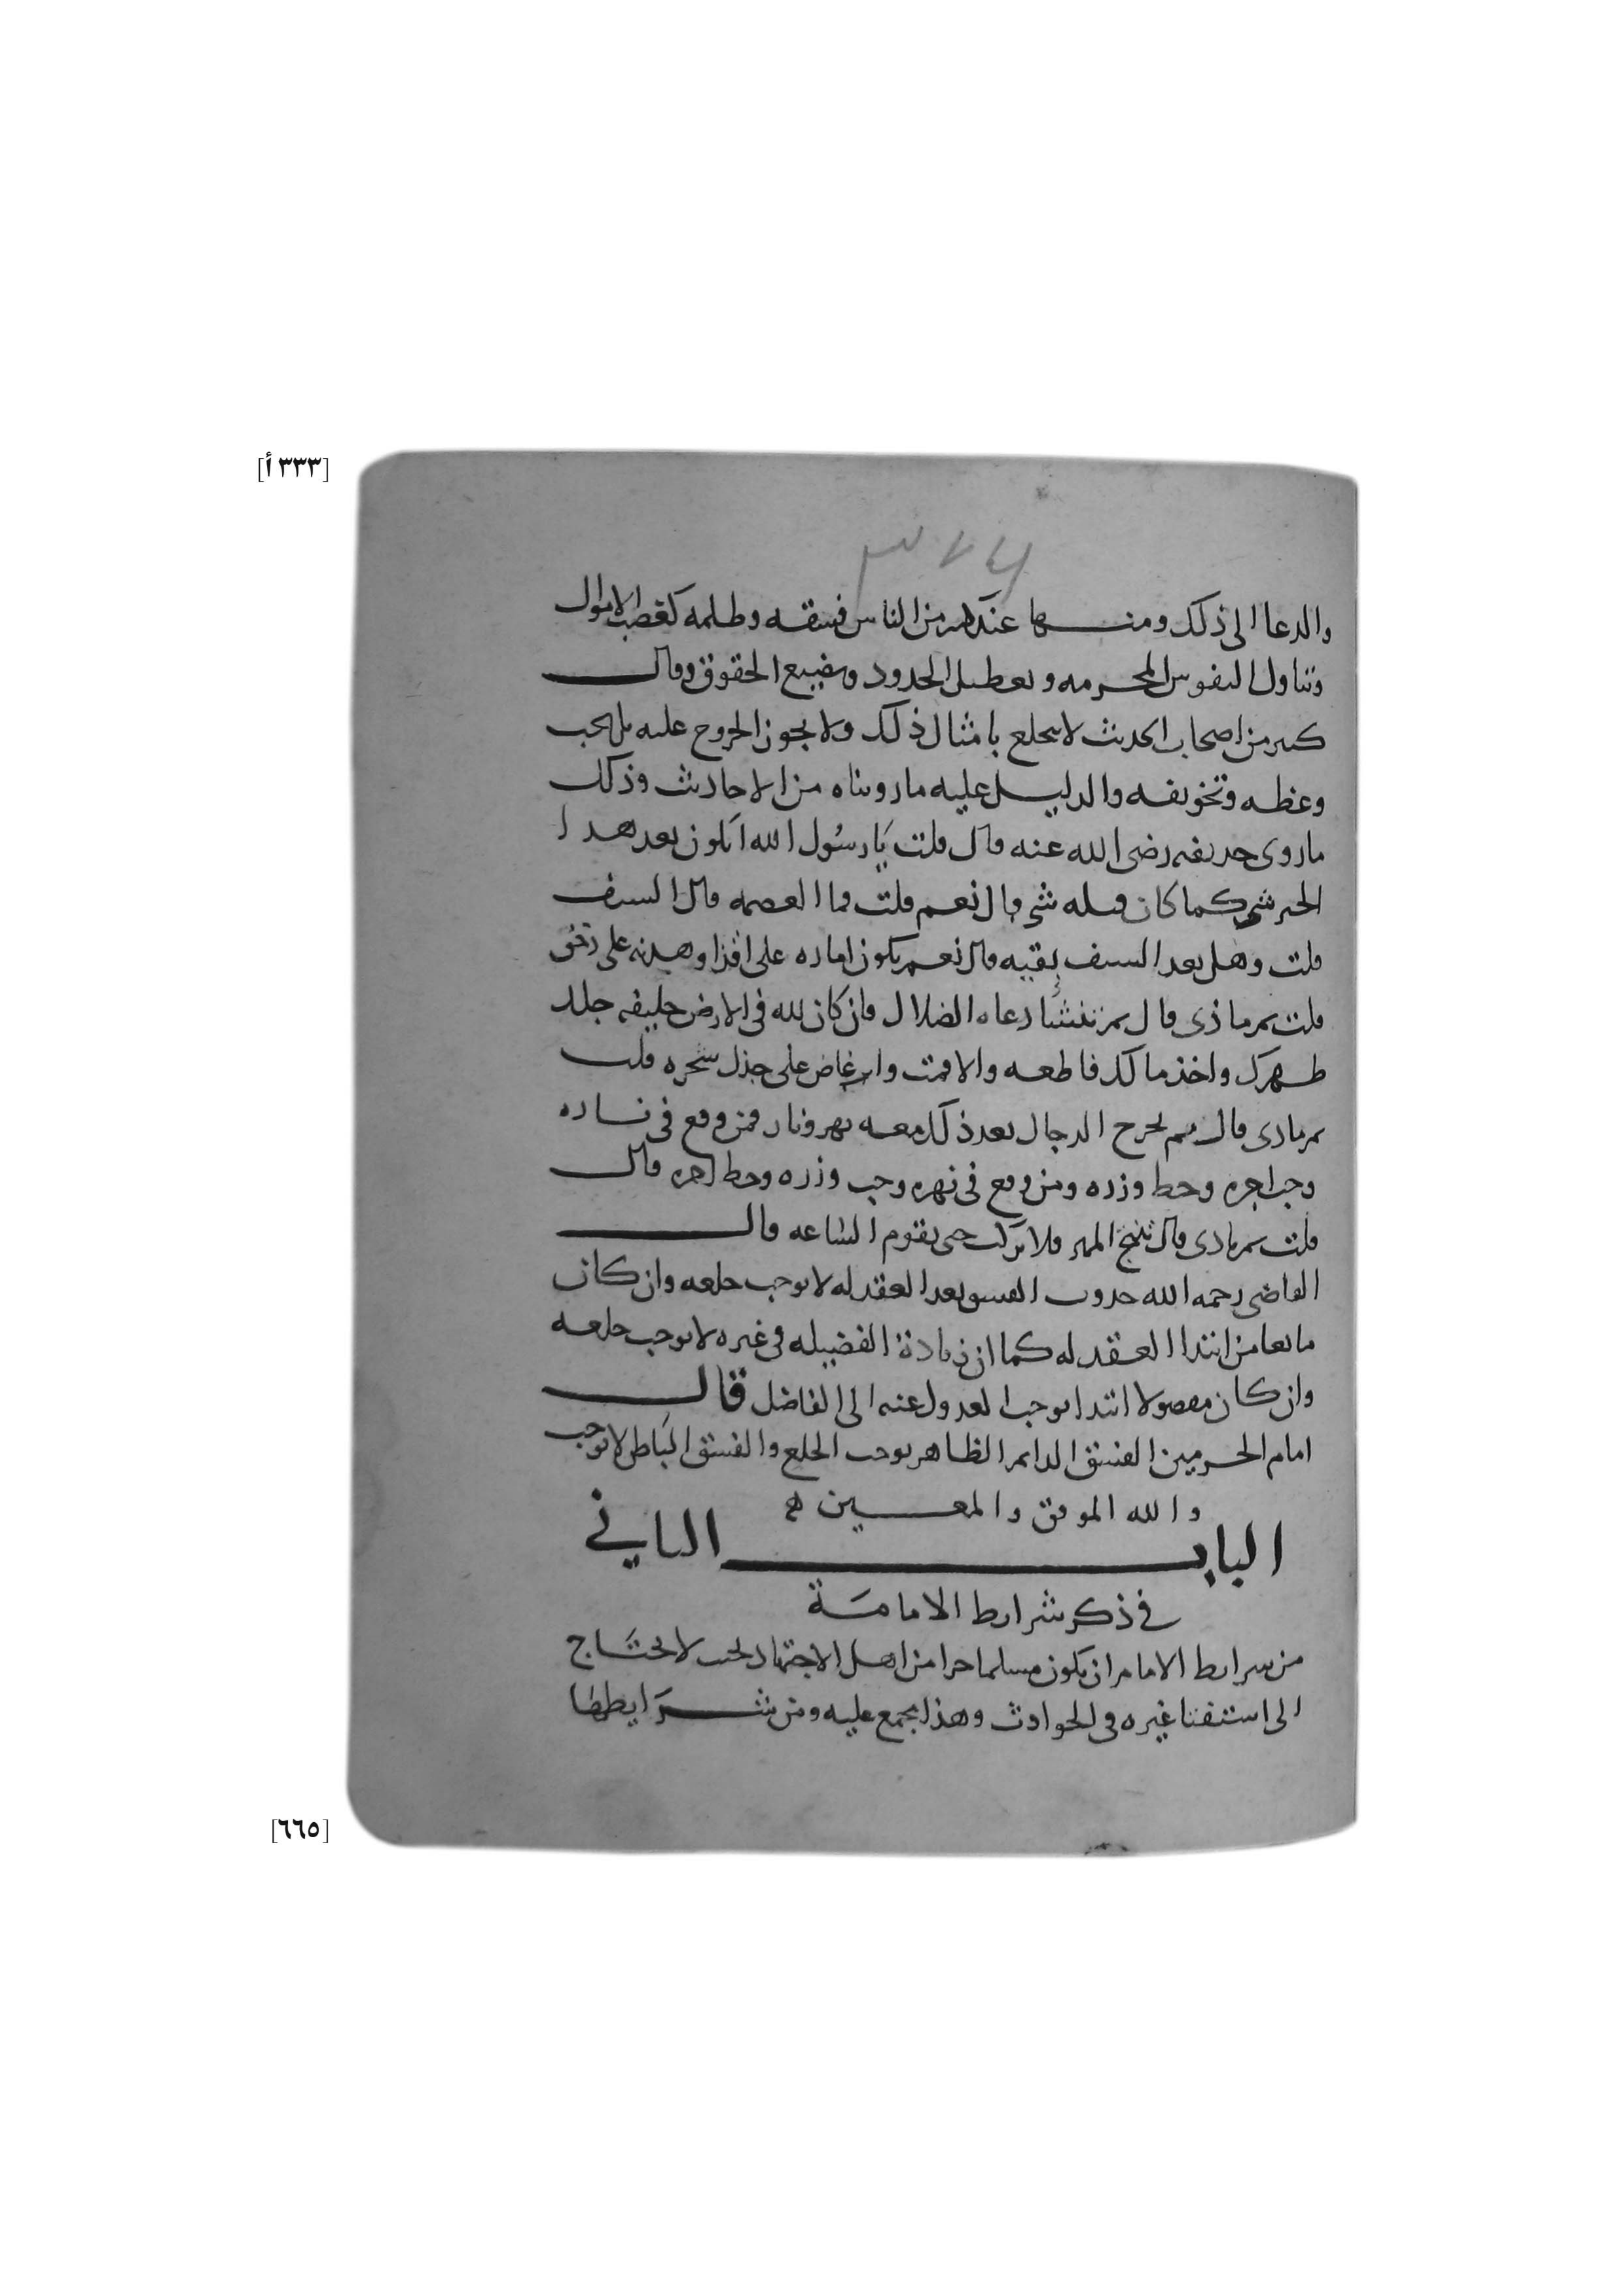 [٣٣٣ أ]
٣٧٤
والدعا الى ذلك ومنها عند كثير من الناس فسقه وظلمه كغصب الاموال
وتناول النفوس المحرمه وتعطيل الحدود وتضييع الحقوق وقال
كثير من اصحاب الحديث لا ينخلع بامثال ذلك ولا يجوز الخروج عليه بل يجب
وعظه وتخويفه والدليل عليه ما رويناه من الاحاديث وذلك
ما روى حذيفه رضى الله عنه قال قلت يا رسول الله ايكون بعد هذا
الخير شر كما كان قبله شر قال نعم قلت فما العصمه قال السيف
قلت وهل بعد السيف بقيه قال نعم يكون اماره على اقذا وهدنه على دخن
قلت ثم ماذى قال ثم تنشأ دعاه الضلال فان كان لله فى الارض خليفه جلد
ظهرك واخذ مالك فاطعه والا فمت وانت عاض على جذل شجره قلت
ثم ماذى قال ثم يخرج الدجال بعد ذلك معه نهر ونار فمن وقع فى ناره
وجب اجره وحط وزره ومن وقع فى نهره وجب وزره وحط اجره قال
قلت ثم ماذى قال تنتج المهر فلا يركب حتى تقوم الساعه قال
القاضى رحمه الله حدوث الفسق بعد العقد له لا يوجب خلعه وان كان
مانعا من ابتدا العقد له كما ان زيادة الفضيله فى غيره لا توجب خلعه
وان كان مفضولا ابتدا يوجب العدول عنه الى الفاضل قال
امام الحرمين الفسق الدائم الظاهر يوجب الخلع والفسق الباطن لا يوجب
والله الموفق والمعين
الباب الثانى
فى ذكر شرايط الامامة
من شرايط الامام ان يكون مسلما حرا من اهل الاجتهاد بحيث لا يحتاج
الى استفتا غيره فى الحوادث وهذا مجمع عليه ومن شرايطها
[٦٦٥]